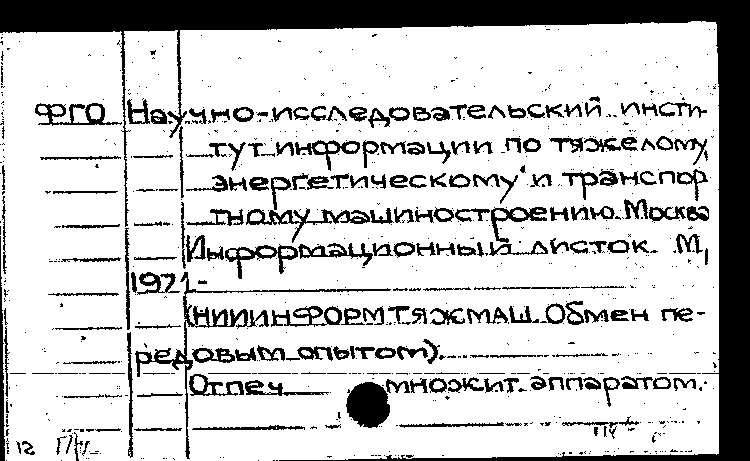 ФГО Научно-исследовательский инсти-
тут информации по тяжелому,
энергетическому и транспор
тному машиностроению. Москва
Информационный листок. М.,
1971-
(НИИИНФОРМТЯЖМАШ. Обмен пе-
редовым опытом).
Отпеч. множит. аппаратом.
12